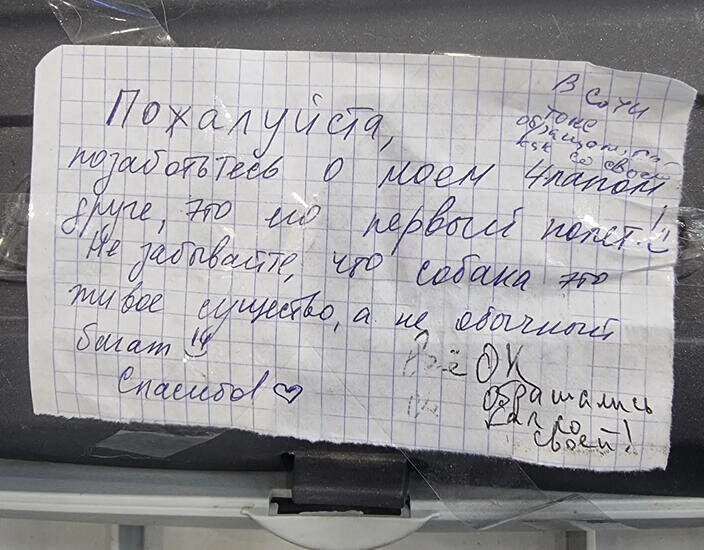 Пожалуйста,
позаботьтесь о моем 4лапом
друге, это первый полет! :)
Не забывайте, что собака это
живое существо, а не обычный
багаж
Спасибо! ♡
В Сочи
тоже
обращались
как со своей
Всё ОК
обращались
как со
своей!